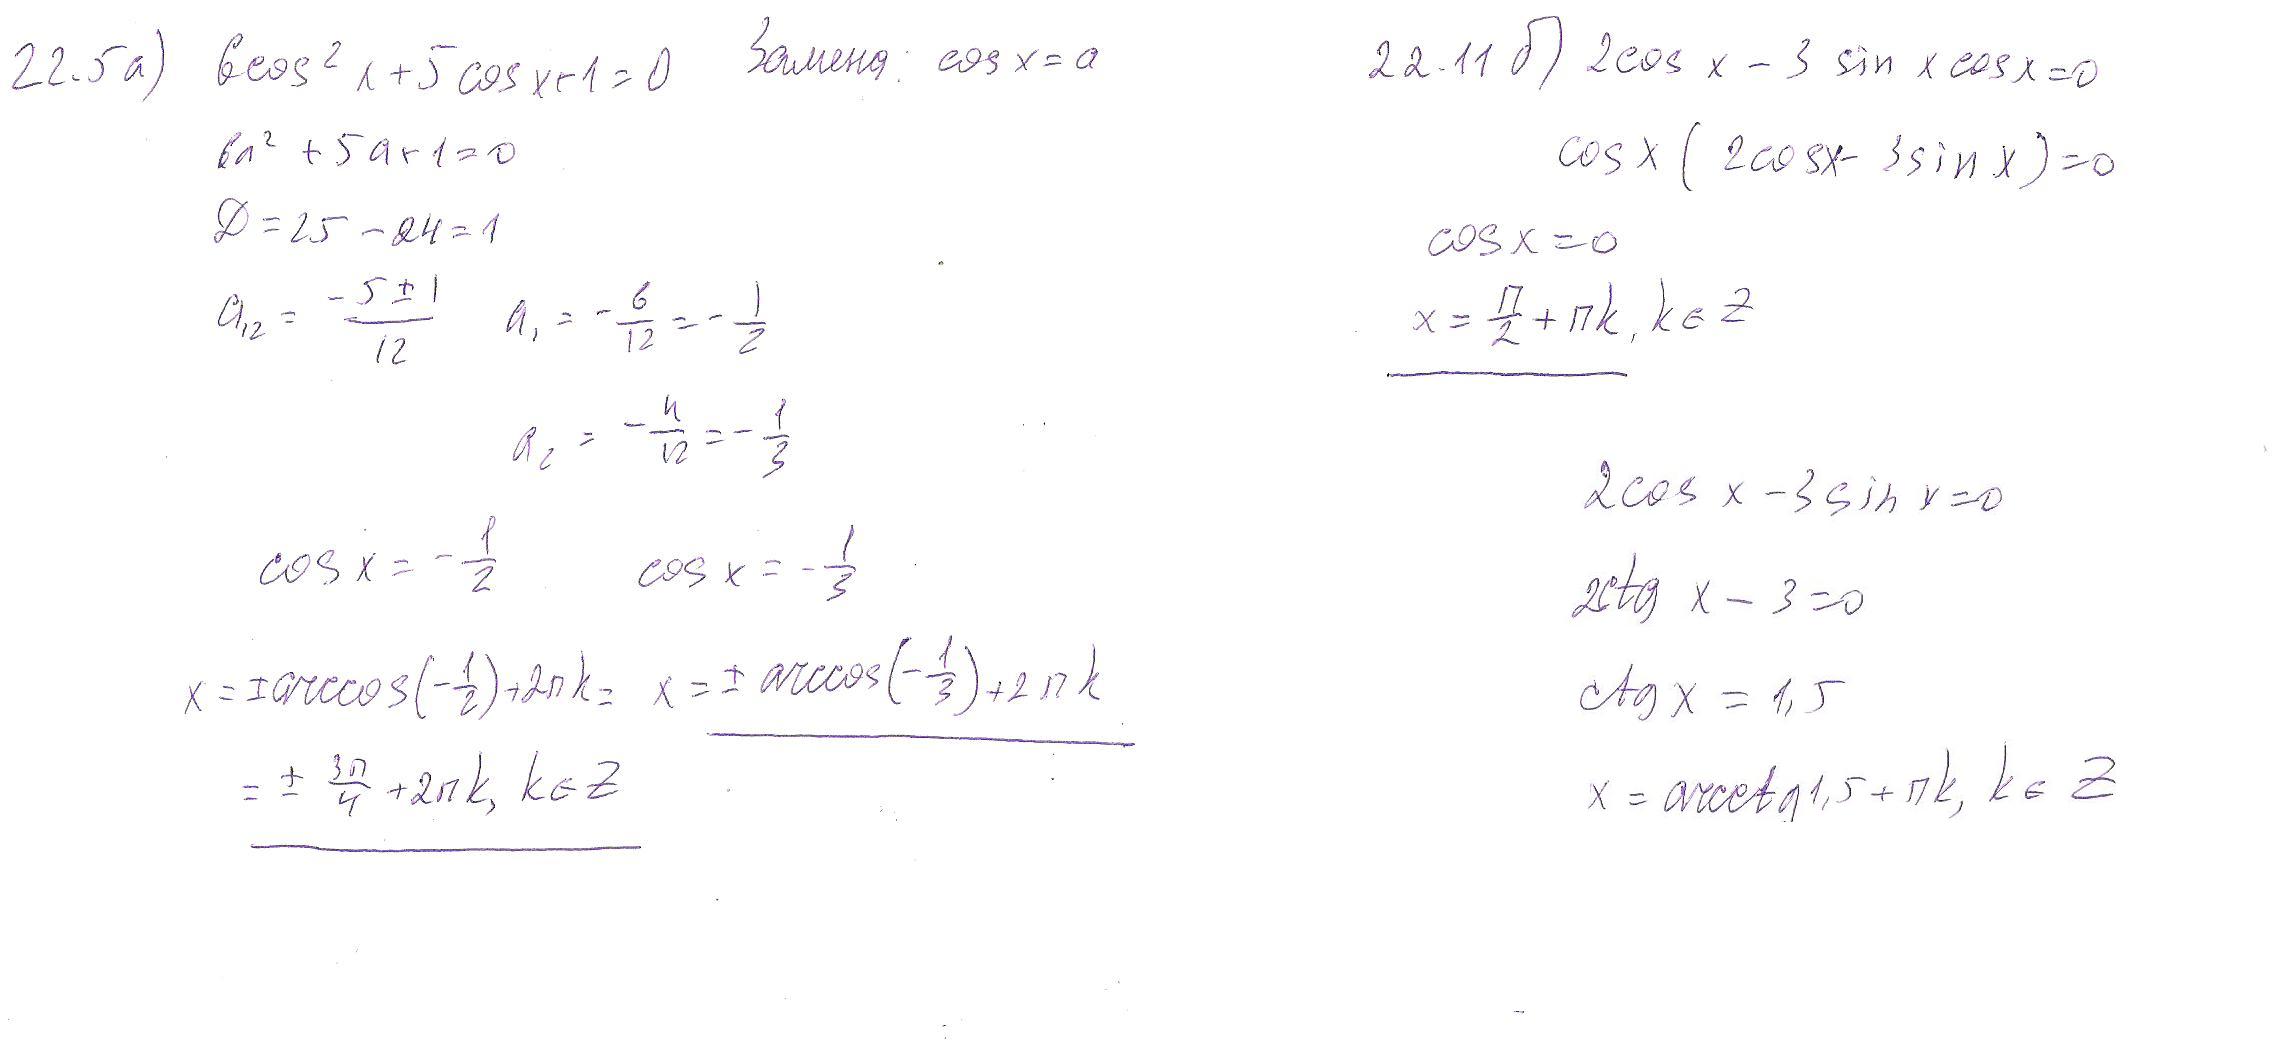 22.5а) 6cos² x+5cosx+1=0 Замена: cos x=a
6a² +5a+1=0
D=25-24=1
a₁₂ = (-5±1)/12 a₁ = -6/12 = -1/2
a₂ = -4/12 = -1/3
cos x = -1/2 cos x = -1/3
x = ±arccos(-1/2)+2πk= x = ± arccos(-1/3)+2πk
= ± 3π/4 +2πk, k∈Z
22.11 б) 2cos x - 3 sin x cos x=0
cos x (2cosx- 3sin x)=0
cos x=0
x = π/2 + πk, k∈Z
2cos x -3 sin x=0
2ctg x - 3=0
ctg x = 1,5
x = arcctg 1,5 + πk, k∈Z